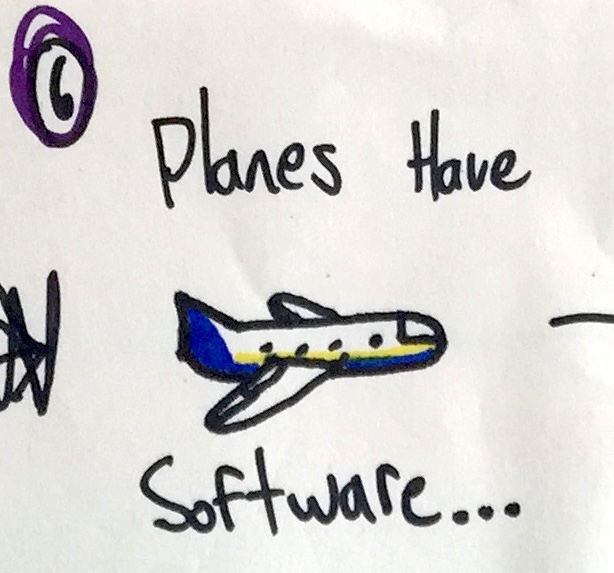 6
Planes Have
Software...